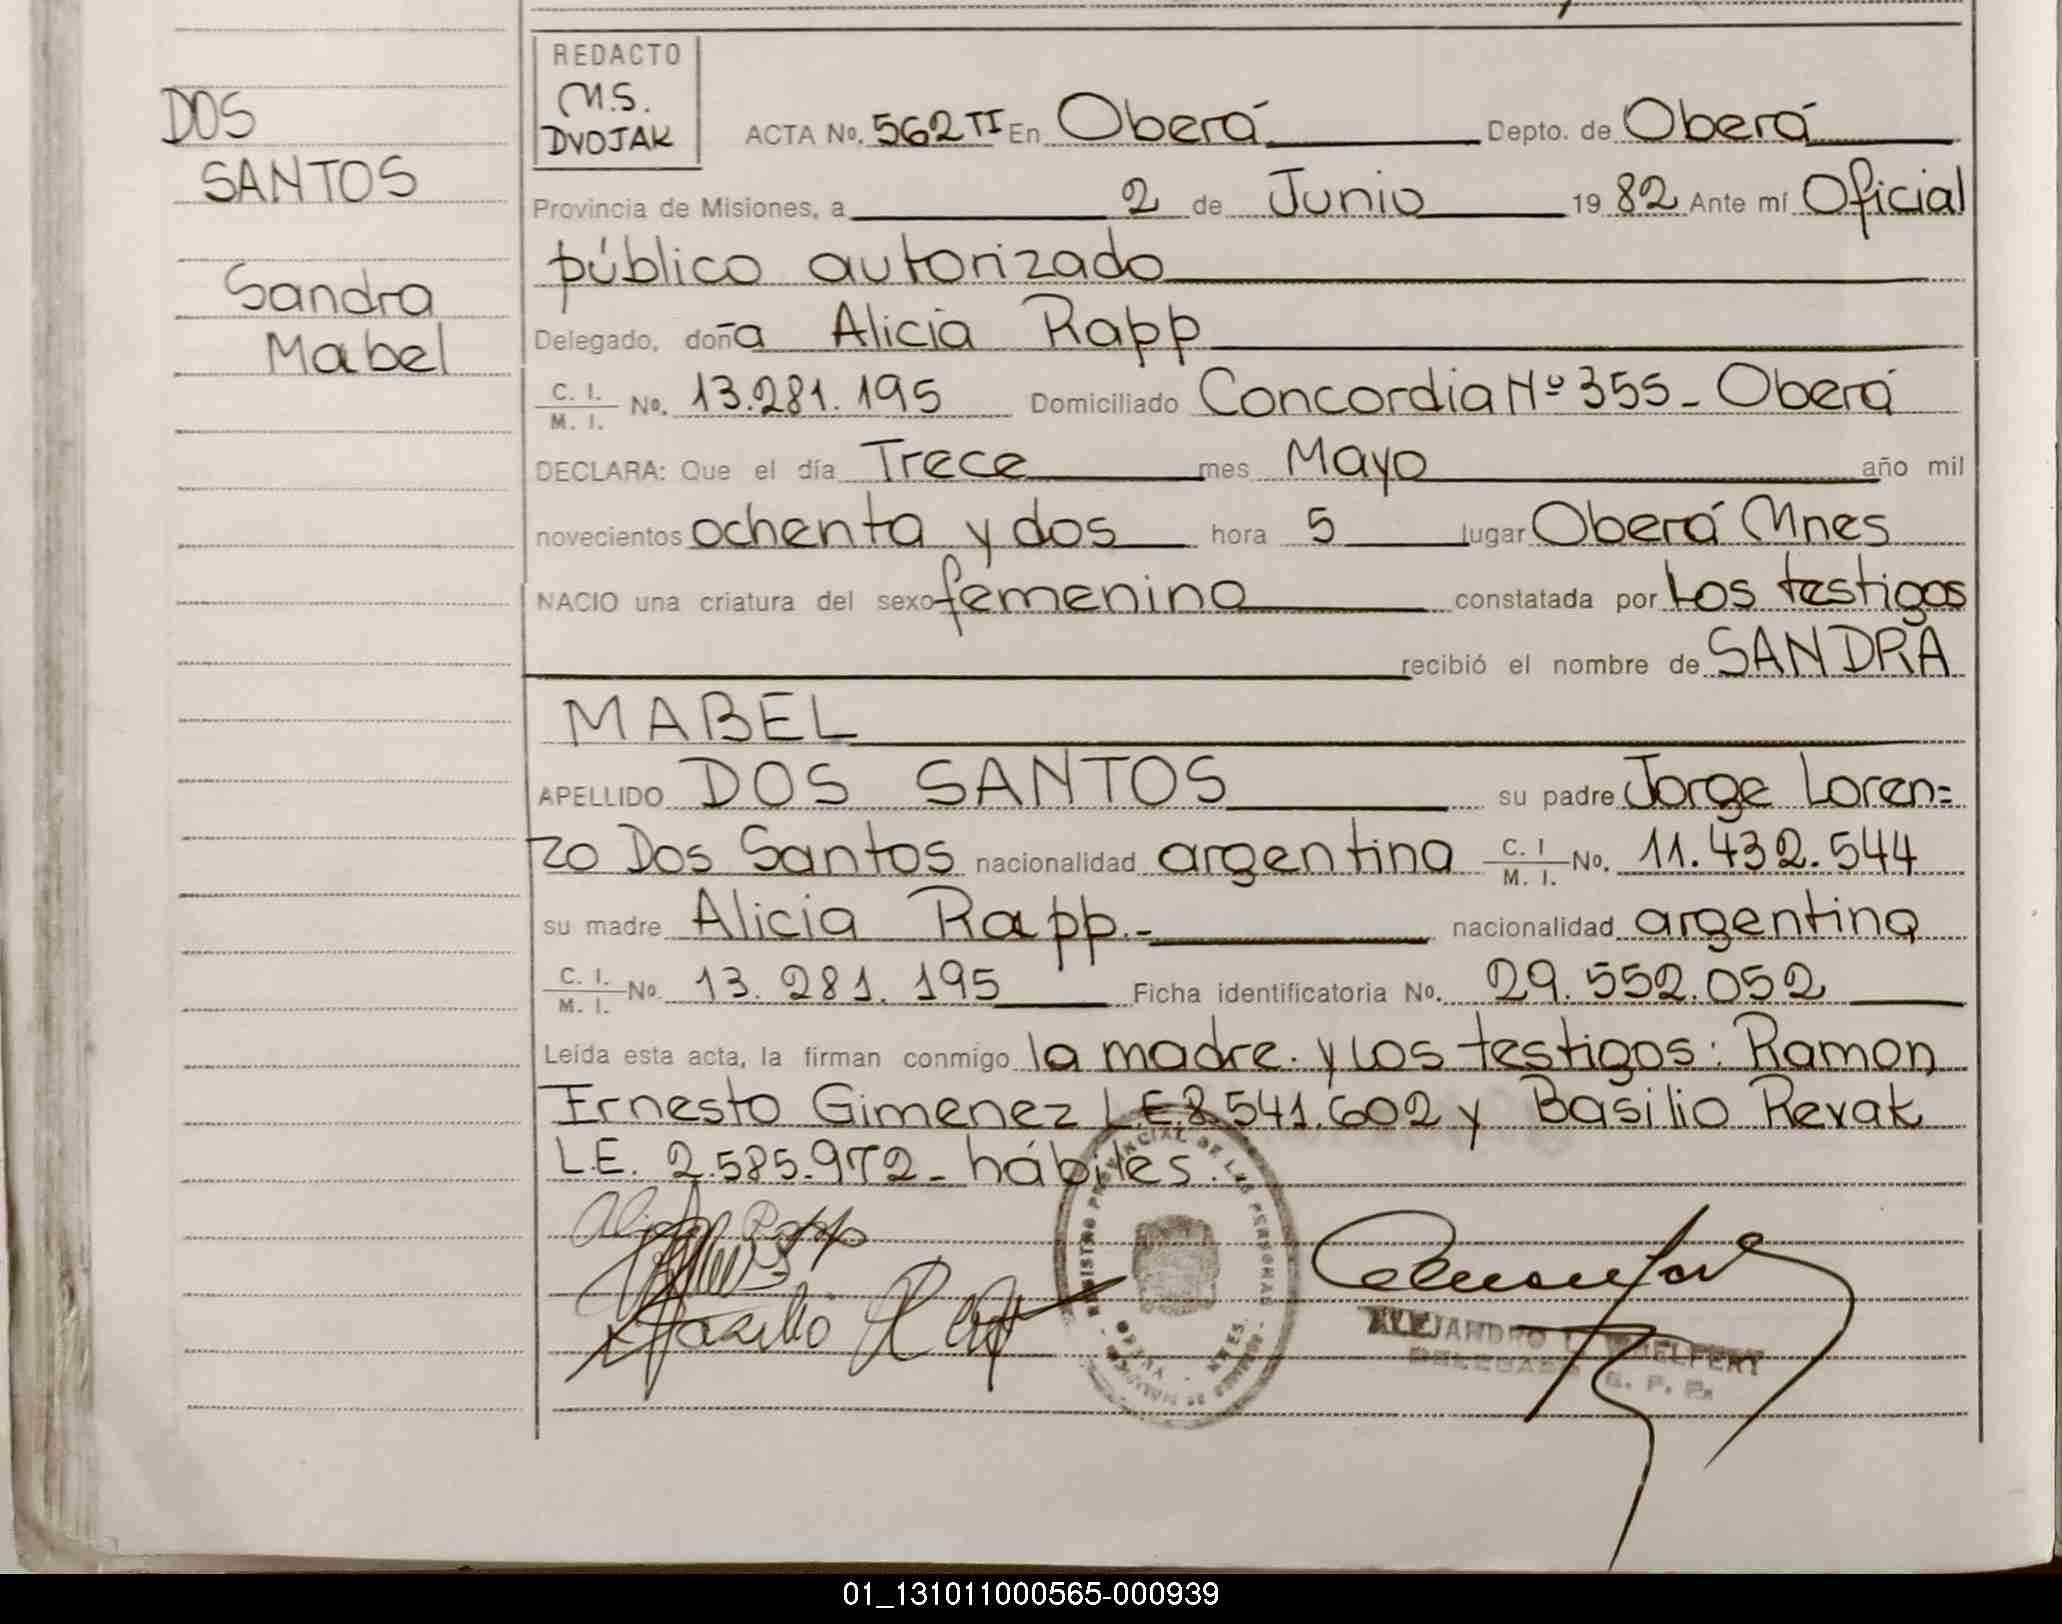 DOS
SANTOS
Sandra
Mabel
REDACTO
M.S.
DVOJAK
ACTA No. 562 TI En Oberá Depto. de Oberá
Provincia de Misiones, a 2 de Junio 1982 Ante mí Oficial
público autorizado
Delegado, doña Alicia Rapp
C. I. / M. I. No. 13.281.195 Domiciliado Concordia Nº 355 - Oberá
DECLARA: Que el día Trece mes Mayo año mil
novecientos ochenta y dos hora 5 lugar Oberá Mnes
NACIO una criatura del sexo femenino constatada por Los testigos
recibió el nombre de SANDRA
MABEL
APELLIDO DOS SANTOS su padre Jorge Loren=
zo Dos Santos nacionalidad argentina C. I / M. I. No. 11.432.544
su madre Alicia Rapp.- nacionalidad argentina
C. I. / M. I. No. 13.281.195 Ficha identificatoria No. 29.552.052
Leída esta acta, la firman conmigo la madre. y los testigos: Ramon
Ernesto Gimenez L.E.8.541.602 y Basilio Revak
L.E. 2.585.972- hábiles.-
Alicia Rapp
Basilio
REGISTRO PROVINCIAL DE LAS PERSONAS
OBERA - MNES.
ALEJANDRO
DELEGADO R. P. P.
01_131011000565-000939